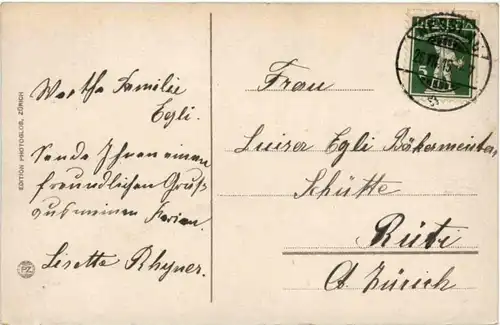 Werthe Familie
Egli.
Sende Ihnen einen
freundlichen Gruß
aus meinen Ferien.
Lisette Rhyner.
EDITION PHOTOGLOB, ZÜRICH
PZ
Frau
Luiser Egli Bäkermeister
Schütte
Rüti
Ct. Zürich
5